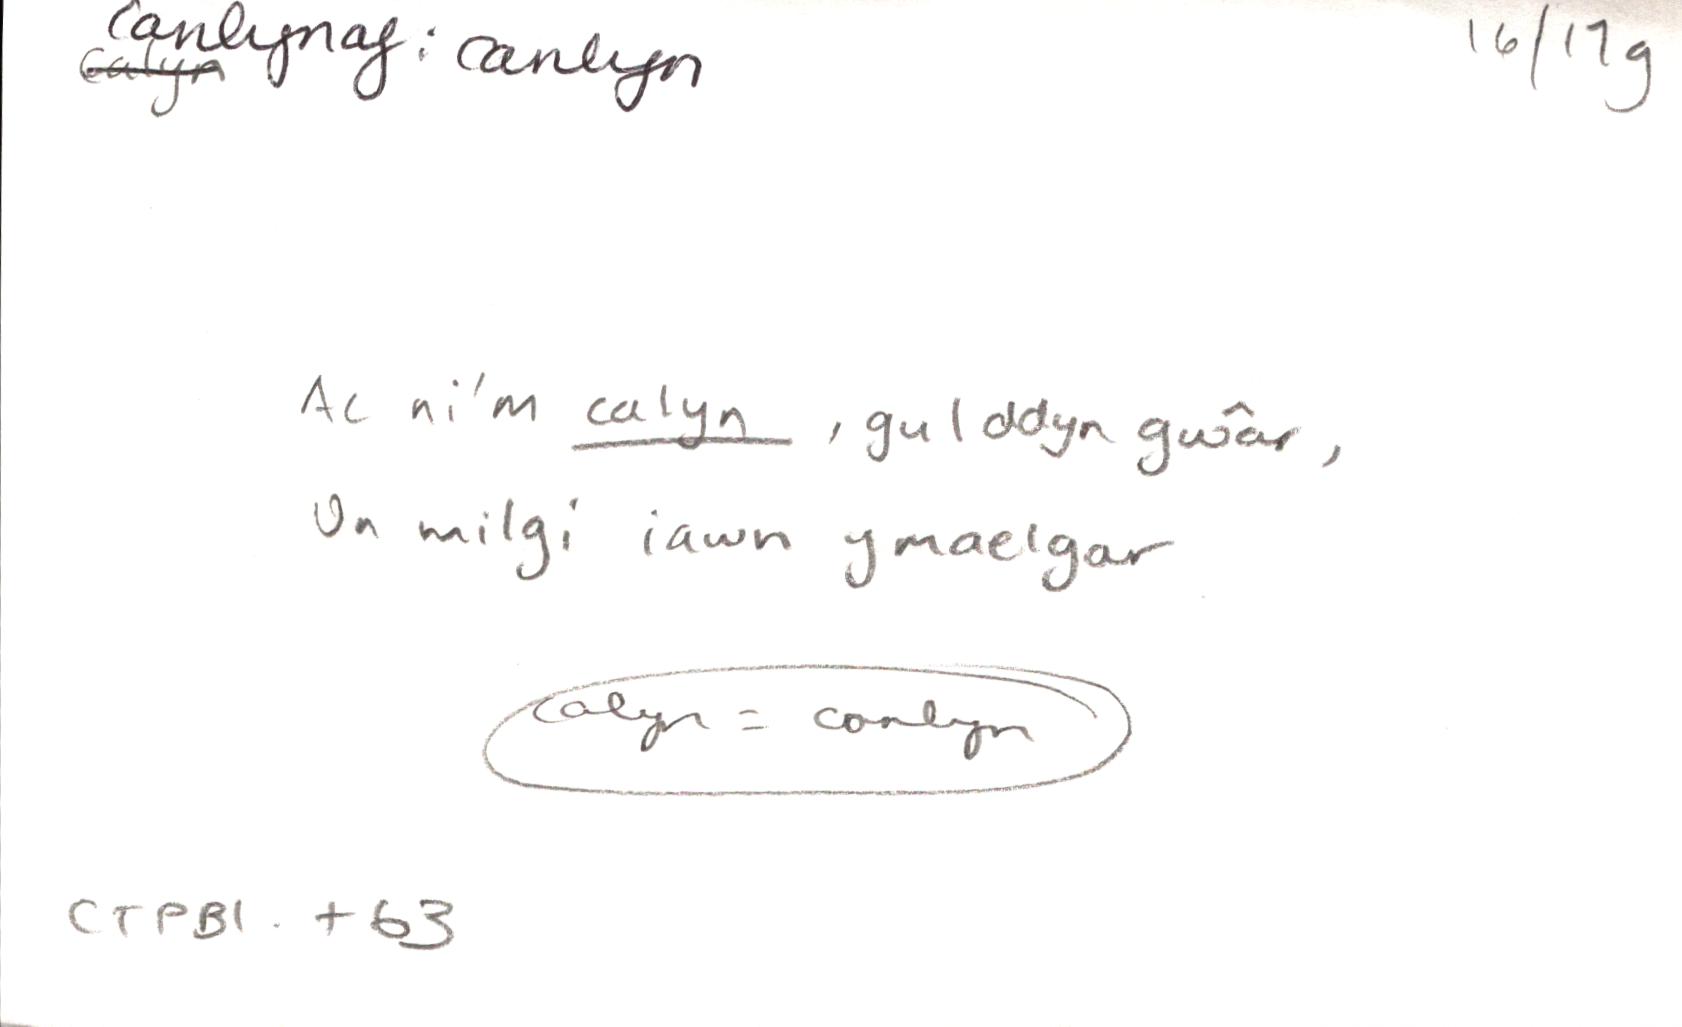 canlynaf: canlyn 16/17g
calyn
Ac ni'm calyn, gul ddyn gwâr,
Un milgi iawn ymaelgar
calyn = canlyn
CTPB1. t 63